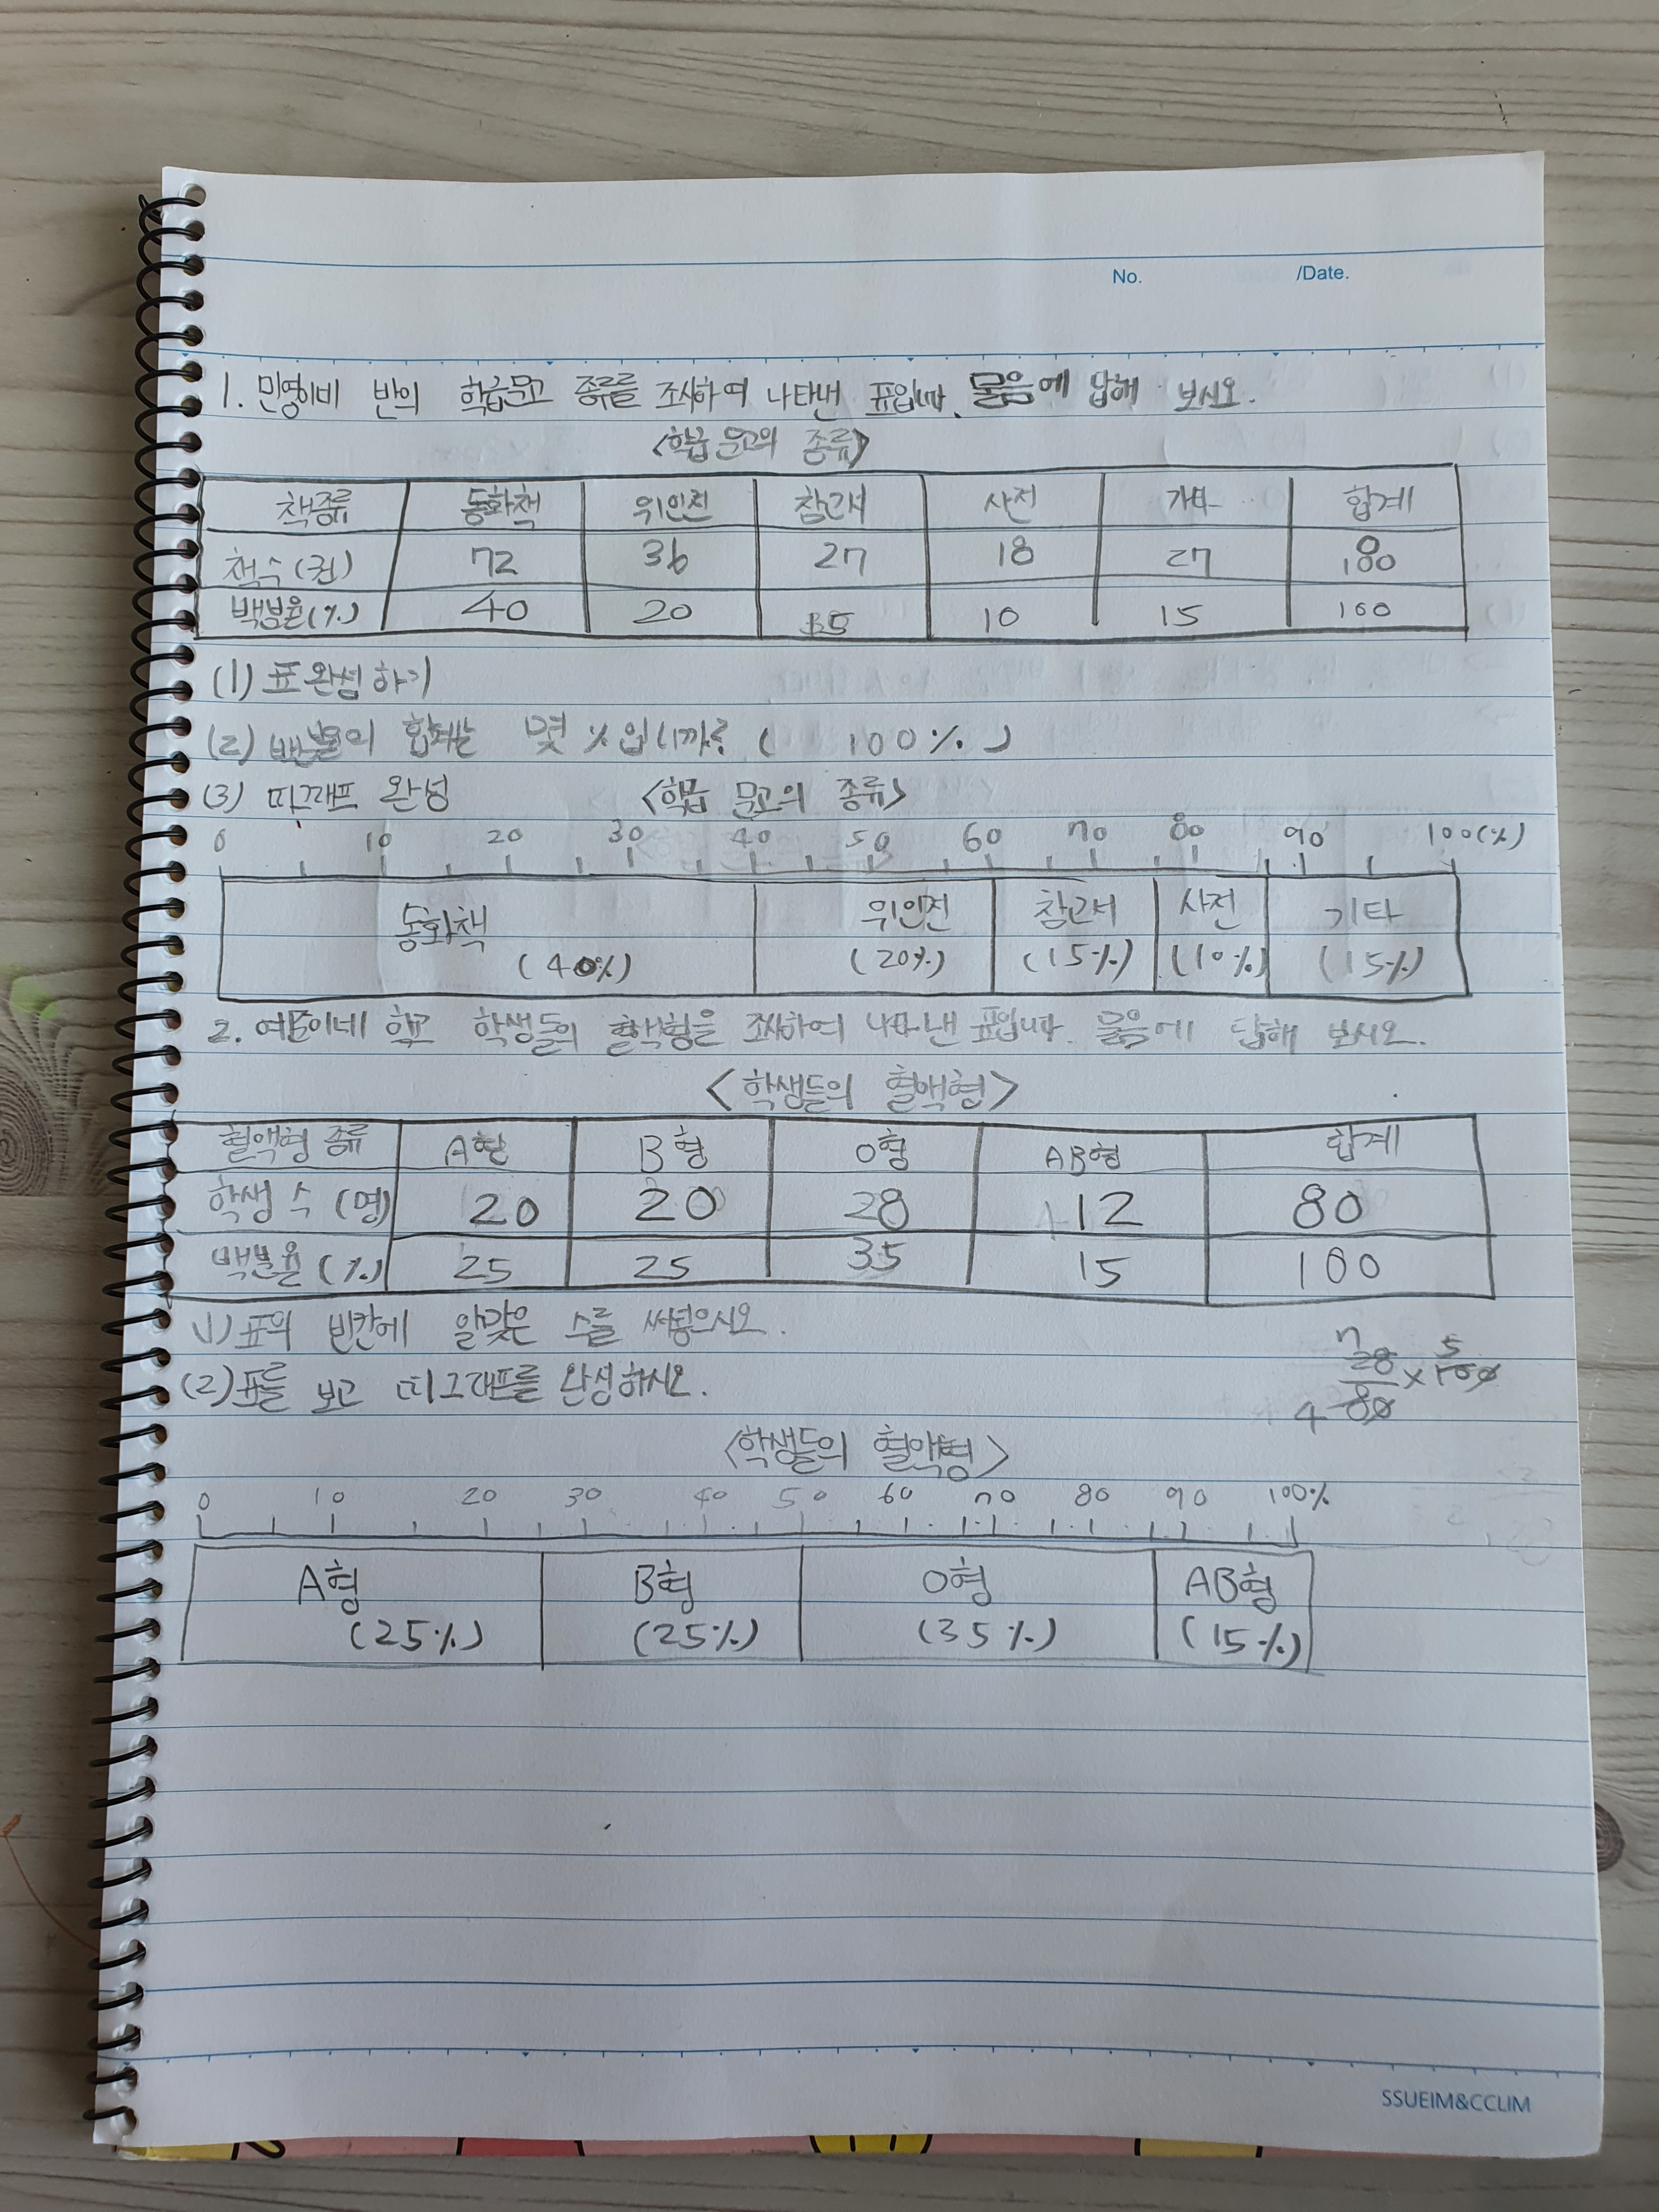 No. /Date.
1. 민영이네 반의 학급문고 종류를 조사하여 나타낸 표입니다. 물음에 답해 보시오.
<학급 문고의 종류>
책종류 동화책 위인전 참고서 사전 기타 합계
책 수 (권) 72 36 27 18 27 180
백분율(%) 40 20 15 10 15 100
(1) 표 완성하기
(2) 백분율의 합계는 몇 %입니까? ( 100% )
(3) 띠그래프 완성 <학급 문고의 종류>
0 10 20 30 40 50 60 70 80 90 100(%)
동화책 위인전 참고서 사전 기타
(40%) (20%) (15%) (10%) (15%)
2. 여준이네 학교 학생들의 혈액형을 조사하여 나타낸 표입니다. 물음에 답해 보시오.
<학생들의 혈액형>
혈액형 종류 A형 B형 O형 AB형 합계
학생 수 (명) 20 20 28 12 80
백분율 (%) 25 25 35 15 100
1) 표의 빈칸에 알맞은 수를 써넣으시오.
7 5
28 × 100
4 80
(2) 표를 보고 띠그래프를 완성하시오.
<학생들의 혈액형>
0 10 20 30 40 50 60 70 80 90 100%
A형 B형 O형 AB형
(25%) (25%) (35%) (15%)
SSUEIM&CCLIM